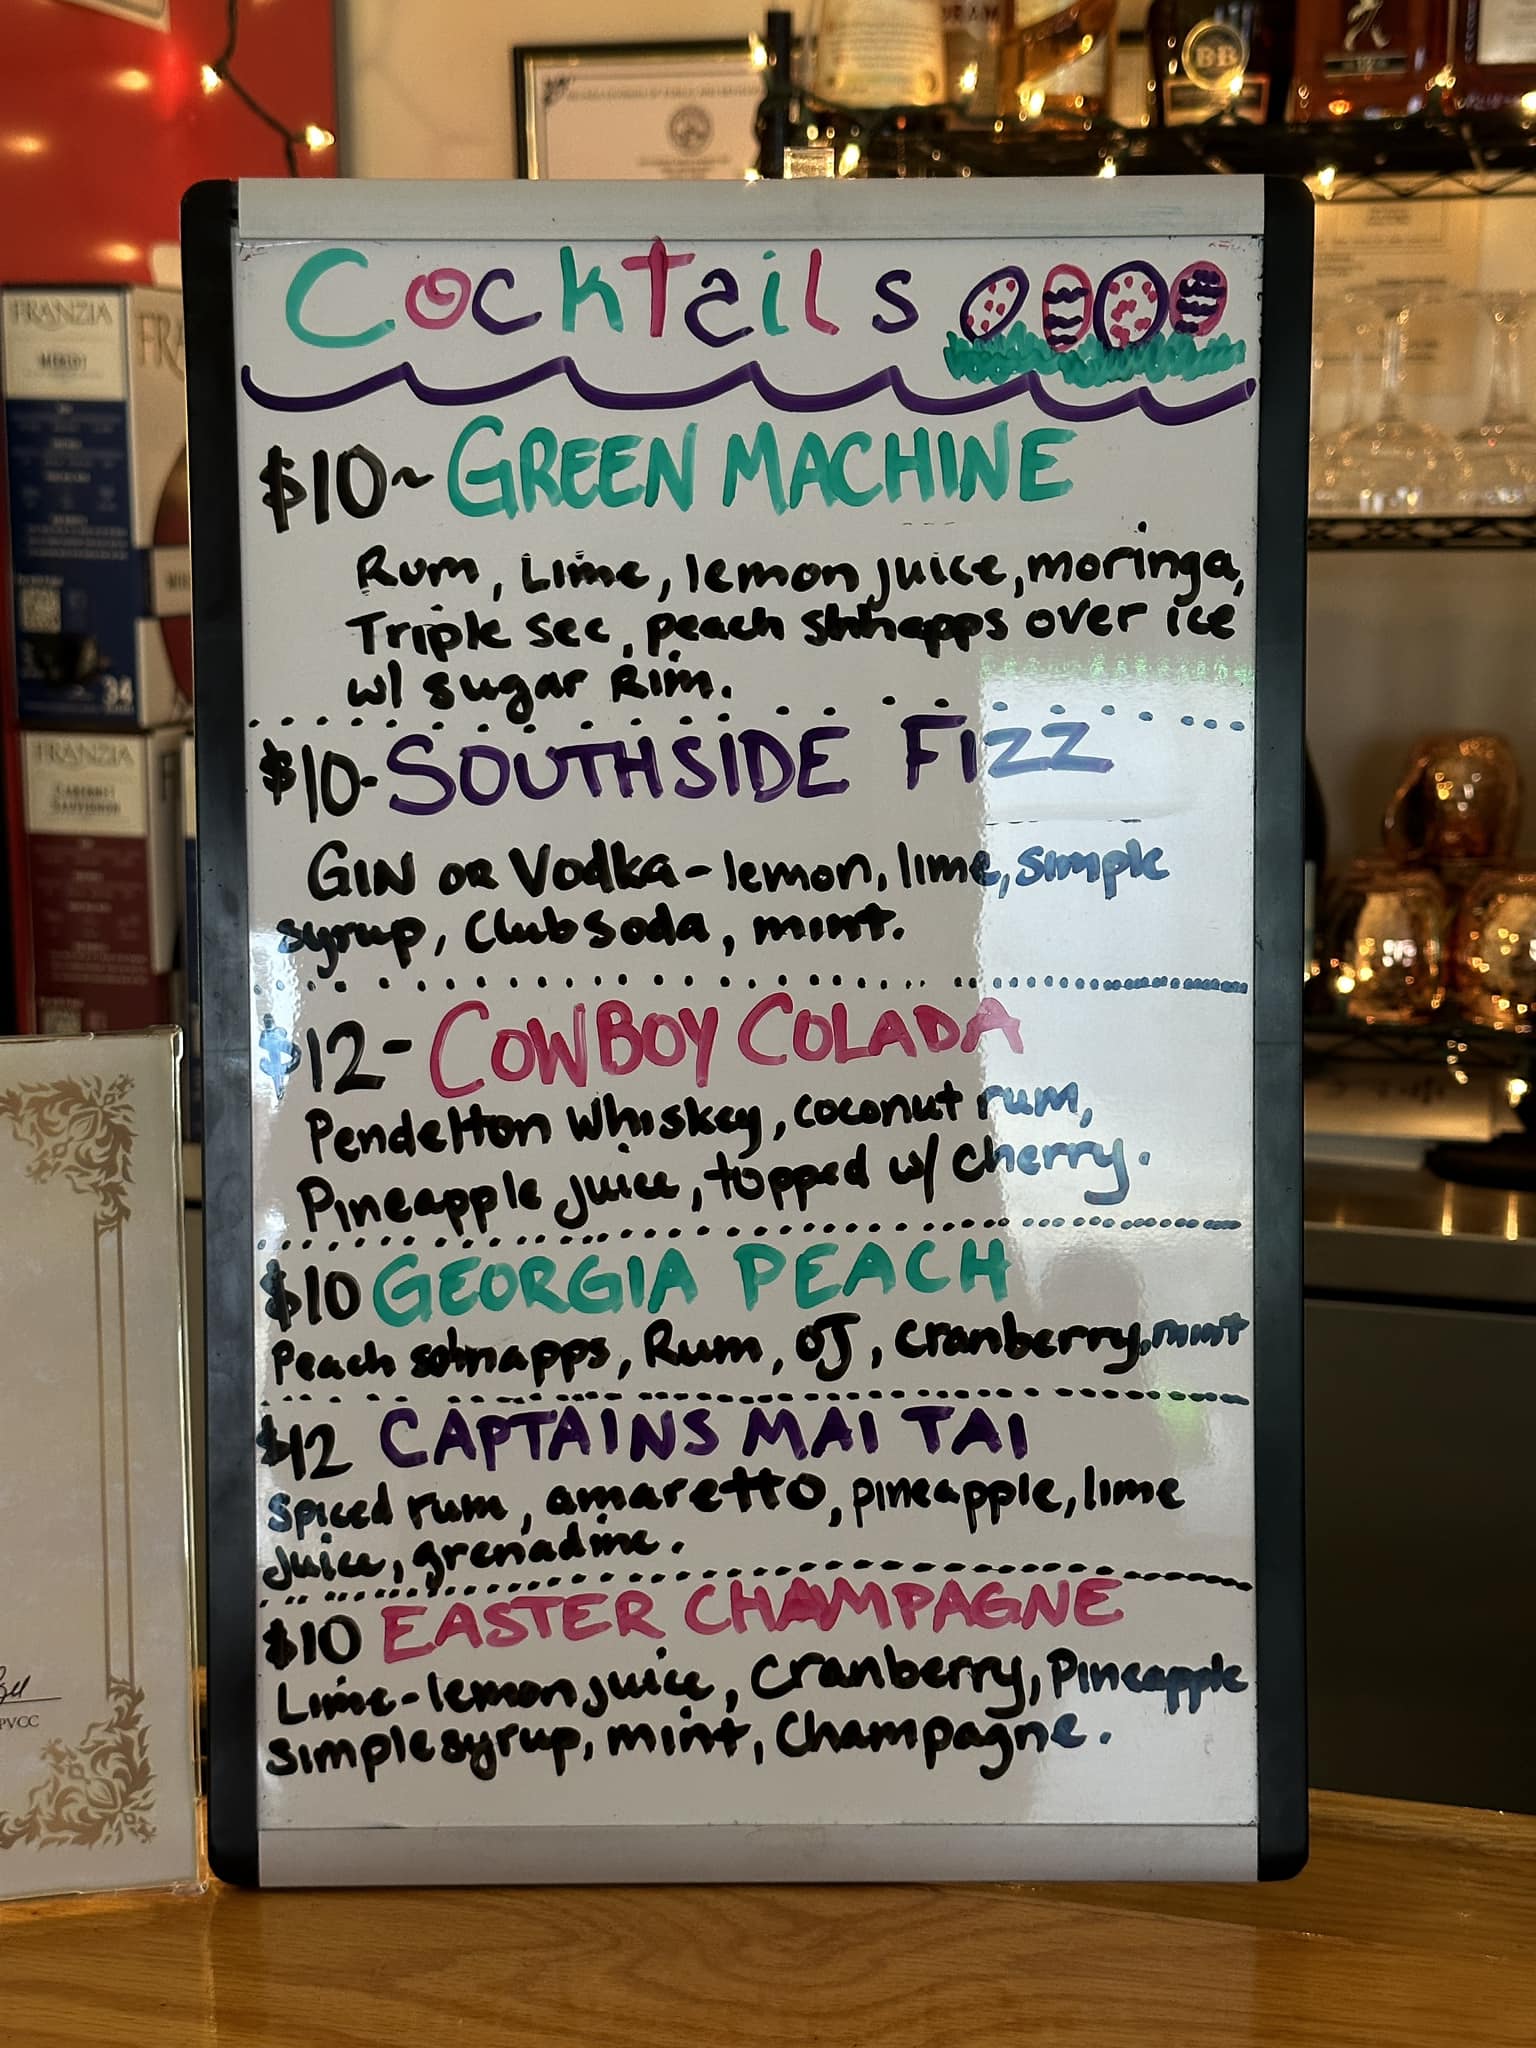 Cocktails
$10~ GREEN MACHINE
Rum, Lime, lemon juice, moringa,
Triple sec, peach shhapps over ice
w/ sugar Rim.
$10- SOUTHSIDE FIZZ
GIN OR Vodka - lemon, lime, simple
syrup, Club soda, mint.
$12- COWBOY COLADA
Pendelton Whiskey, coconut rum,
Pineapple juice, topped w/ cherry.
$10 GEORGIA PEACH
Peach schnapps, Rum, OJ, Cranberry, mint
$12 CAPTAINS MAI TAI
Spiced rum, amaretto, pineapple, lime
juice, grenadine.
$10 EASTER CHAMPAGNE
Lime-lemon juice, Cranberry, Pineapple
simple syrup, mint, Champagne.
FRANZIA
MERLOT
34
FRANZIA
CABERNET
SAUVIGNON
PVCC
BB